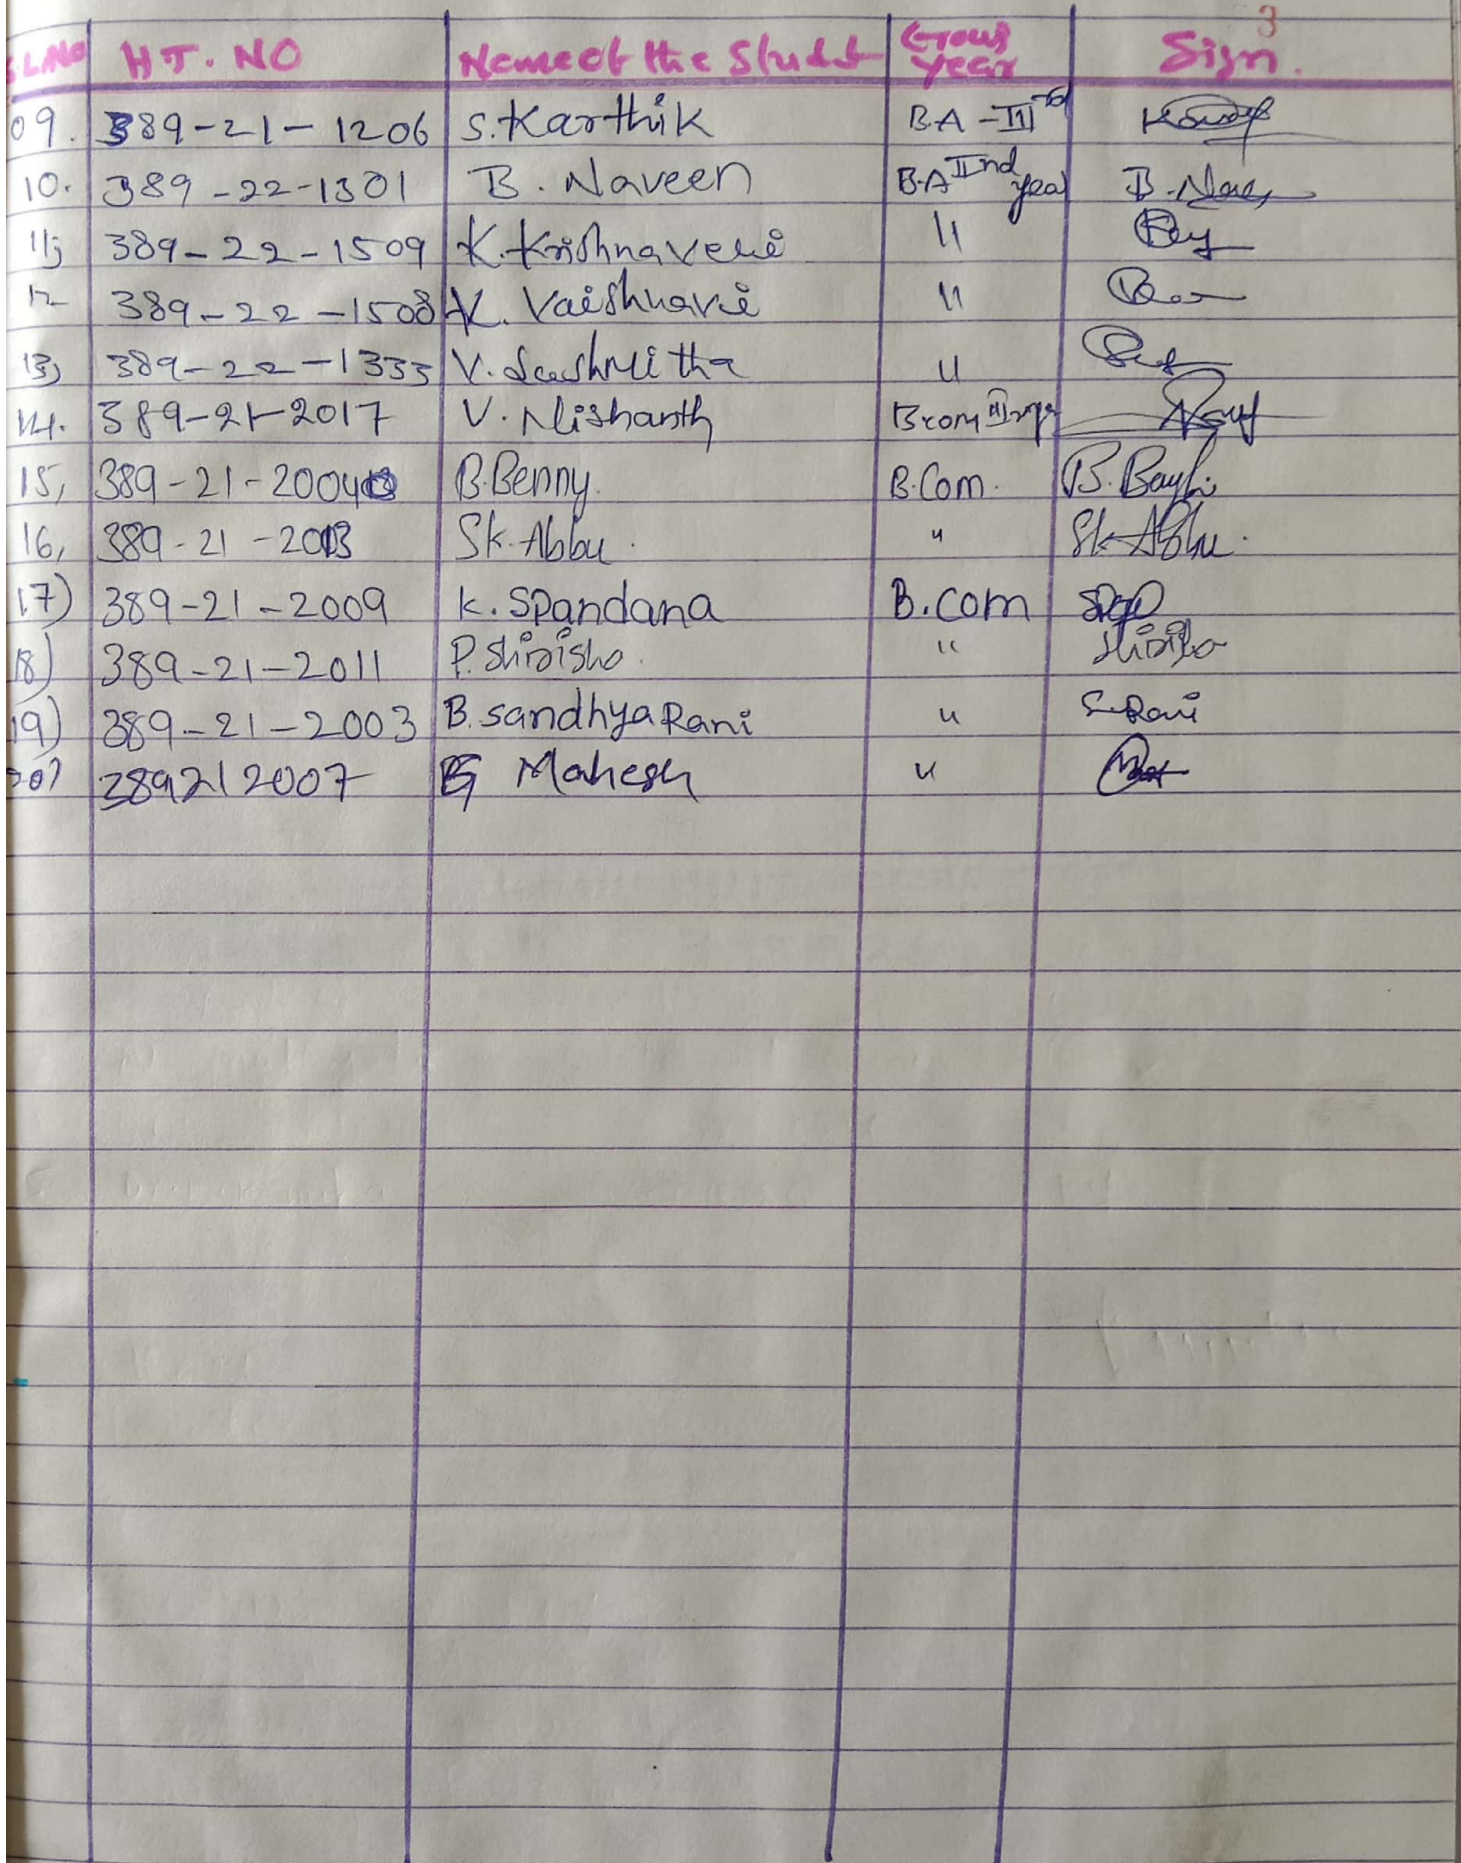 3
SL.No HT. NO Name of the Student Group Year Sign.
09. 389-21-1206 S. Karthik B.A - III rd
10. 389-22-1301 B. Naveen B.A IInd year B. Nav
11, 389-22-1509 K. Krishnaveni "
12 389-22-1508 K. Vaishnavi "
13, 389-22-1333 V. Sushmitha "
14. 389-21-2017 V. Nishanth B.com
15, 389-21-2004 B. Benny. B.Com.
16, 389-21-2013 Sk. Abbu. " Sk. Abbu.
17) 389-21-2009 K. Spandana B.COM
18) 389-21-2011 P. Shirisha. " Shirisha
19) 389-21-2003 B. Sandhya Rani " S. Rani
20) 389212007 G Mahesh "